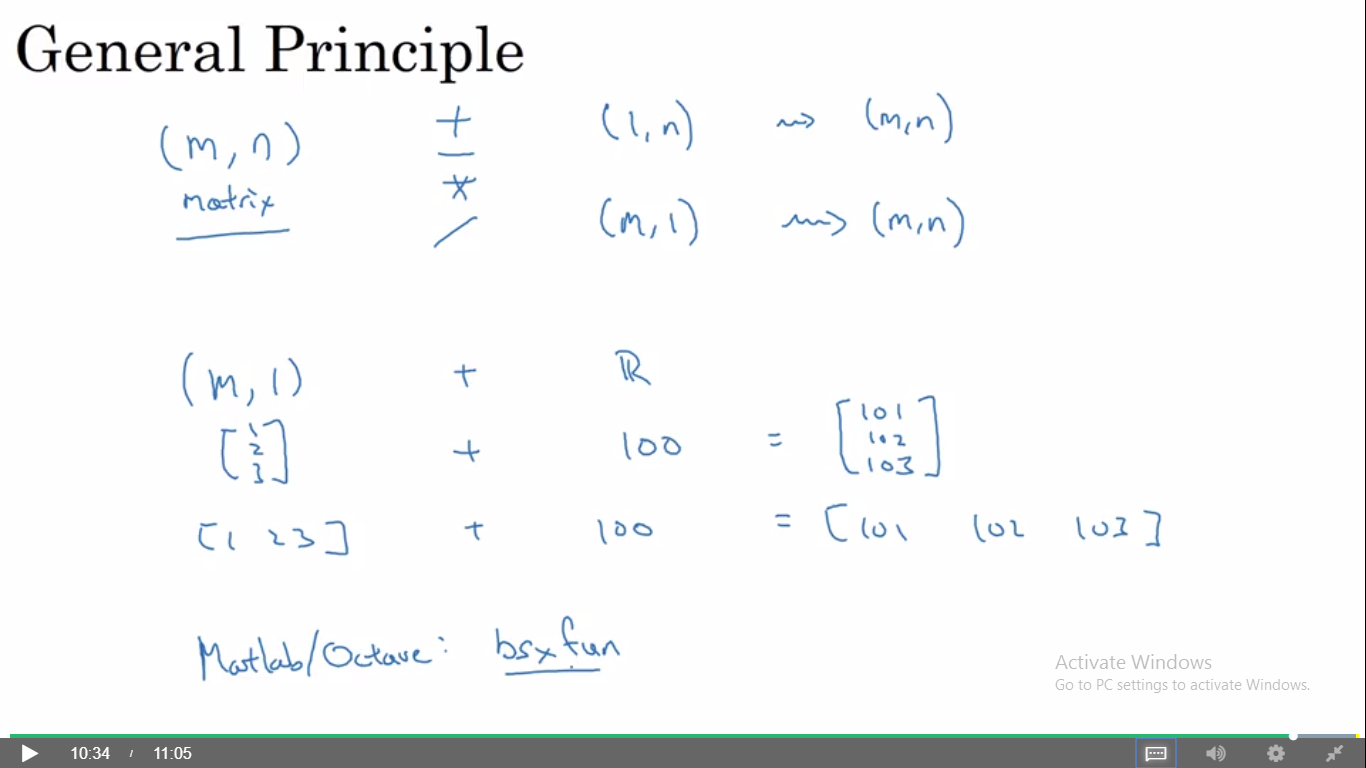 General Principle
(m, n) + (1, n) ⇝ (m, n)
matrix −
*
/ (m, 1) ⇝ (m, n)
(m, 1) + ℝ
[1 2 3] + 100 = [101 102 103]
[1 2 3] + 100 = [101 102 103]
Matlab/Octave: bsxfun
Activate Windows
Go to PC settings to activate Windows.
10:34 / 11:05